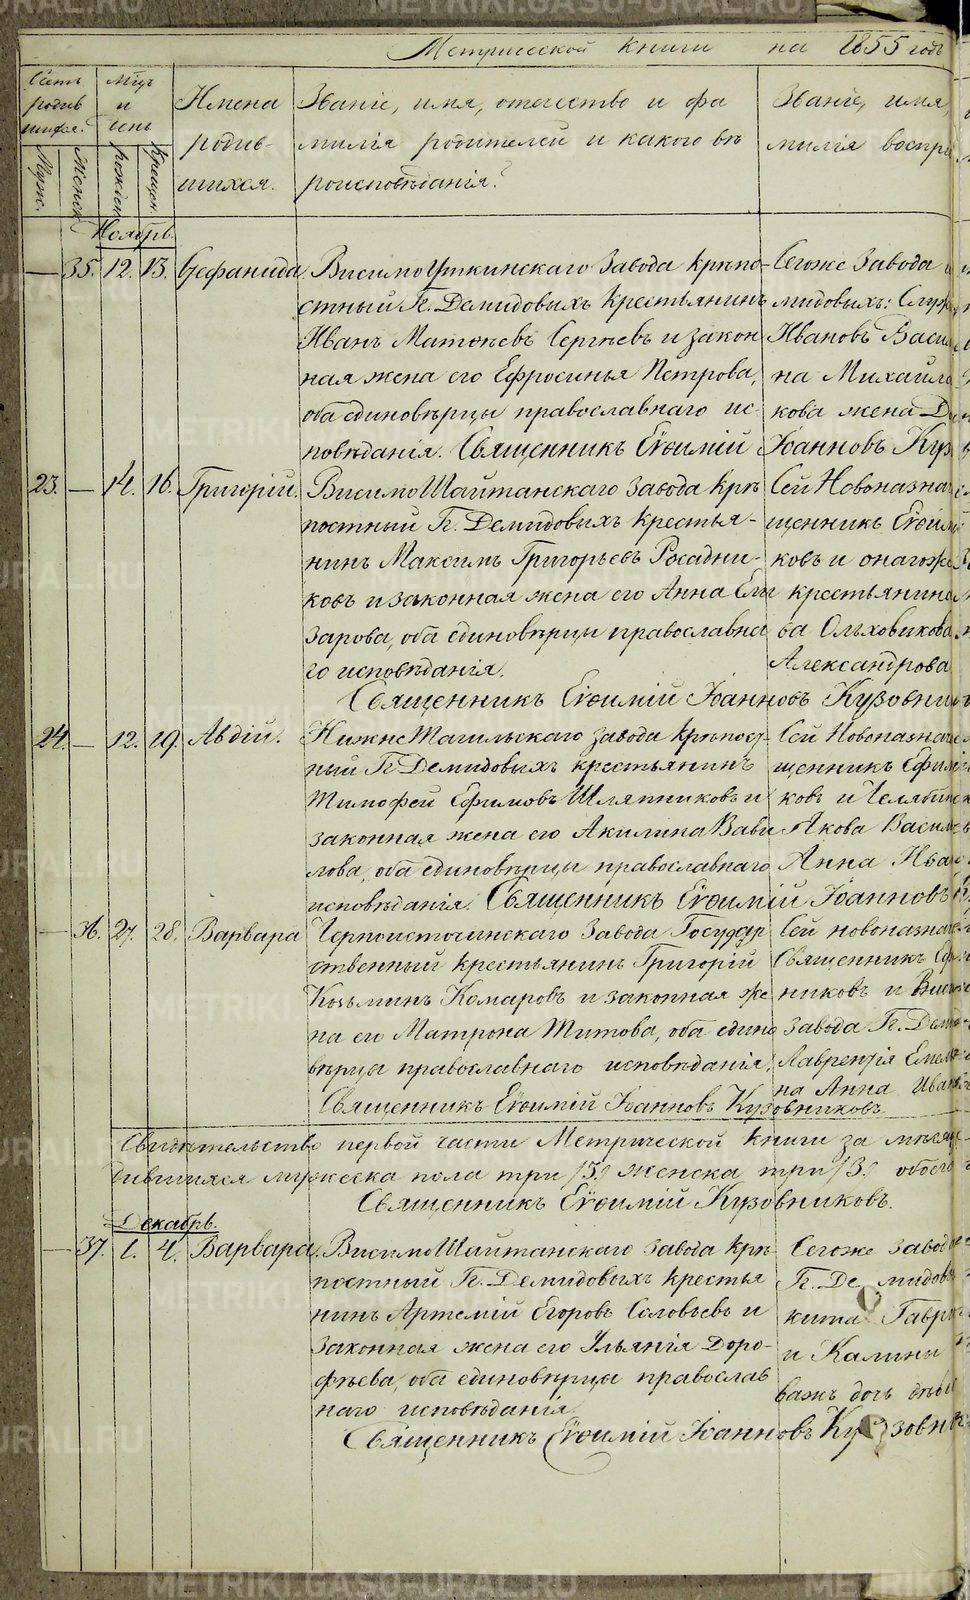 Метрической книги на 1855 годъ
Счетъ родив шихся.
Муж.
Женск
Мцъ и день
рожден
крещен.
Имена родив- шихся.
Званіе, имя, отечество и фа
милія родителей и какого вѣ
роисповѣданія?
Званіе, имя,
милія воспрі
Ноябрь.
— 35. 12. 13. Стефанида.
ВисимоУткинскаго завода крѣпо-
стный Гг. Демидовыхъ крестьянинъ
Иванъ Матвѣевъ Сергѣевъ и закон
ная жена его Ефросинья Петрова,
оба единовѣрцы православнаго ис-
повѣданія. Священникъ Евѳимій Іоанновъ Куз
Сегоже завода
мидовыхъ: Служ
Ивановъ Васи
на Михайло
кова жена
23. — 14. 16. Григорій.
ВисимоШайтанскаго завода крѣ
постный Гг. Демидовыхъ крестья-
нинъ Максимъ Григорьевъ Росадни-
ковъ и законная жена его Анна Ела
зарова, оба единовѣрцы православна
го исповѣданія.
Священникъ Евѳимій Іоанновъ Кузовни
Сей Новоназнач
щенникъ Евѳим
ковъ и онагоже
крестьянина
ва Ольховикова
Александрова
24. — 12. 19. Авдій.
НижнеТагильскаго завода крѣпост-
ный Гг Демидовыхъ крестьянинъ
Тимофей Ефимовъ Шляпниковъ и
законная жена его Акилина Вави
лова, оба единовѣрцы православнаго
исповѣданія. Священникъ Евѳимій Іоанновъ
Сей Новоназнач
щенникъ Ефим
ковъ и Челябинс
Якова Василь
Анна Ива
— 36. 27. 28. Варвара
Черноисточинскаго завода Государ
ственный крестьянинъ Григорій
Козьминъ Комаровъ и законная же
на его Матрона Титова, оба едино
вѣрцы православнаго исповѣданія.
Священникъ Евѳимій Іоанновъ Кузовниковъ
Сей новоназнач
Священникъ Ефи
никовъ и Виси
завода Гг. Деми
Лаврентія Емель
на Анна Иван
Свидѣтельство первой части Метрической книги за мѣсяц
дившихся мужеска пола три /3/ женска три /3/ обоего
Священникъ Евѳимій Кузовниковъ.
Декабрь.
— 37. 1. 4. Варвара.
ВисимоШайтанскаго завода крѣ-
постный Гг. Демидовыхъ крестья
нинъ Артемій Егоровъ Соловьевъ и
законная жена его Ульянія Доро-
фѣева, оба единовѣрцы православ
наго исповѣданія
Священникъ Евѳимій Іоанновъ Кузовник
Сегоже завод
Гг. Демидов
кита Гаври
и Калины
вахъ дочь дѣви
METRIKI.GASO-URAL.RU